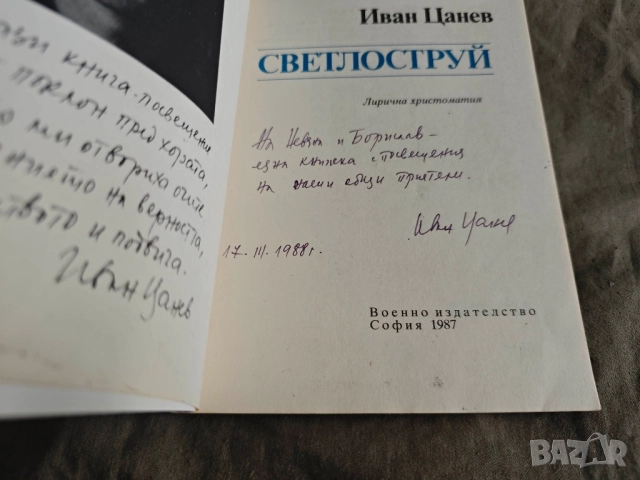 ази книга-посвещени
поклон пред хората,
о ми отвориха очите
нието на верността,
ството и подвига.
Иван Цанев
Иван Цанев
СВЕТЛОСТРУЙ
Лирична христоматия
На Невяна и Борислав –
една книжка с посвещения
на наши общи приятели.
Иван Цанев
17. III. 1988 г.
Военно издателство
София 1987
BAZAR
.bg